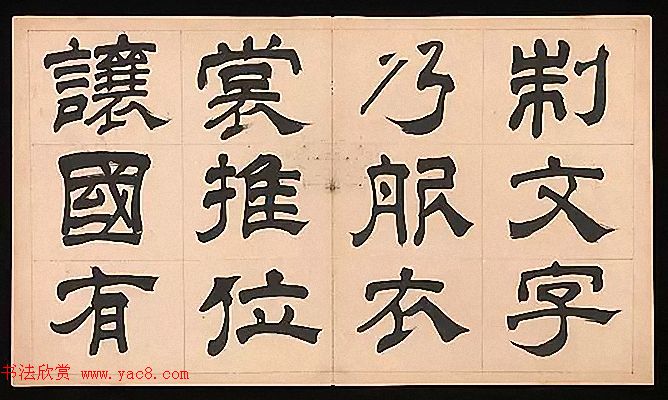 制文字
乃服衣
裳推位
讓國有
书法欣赏 www.yac8.com